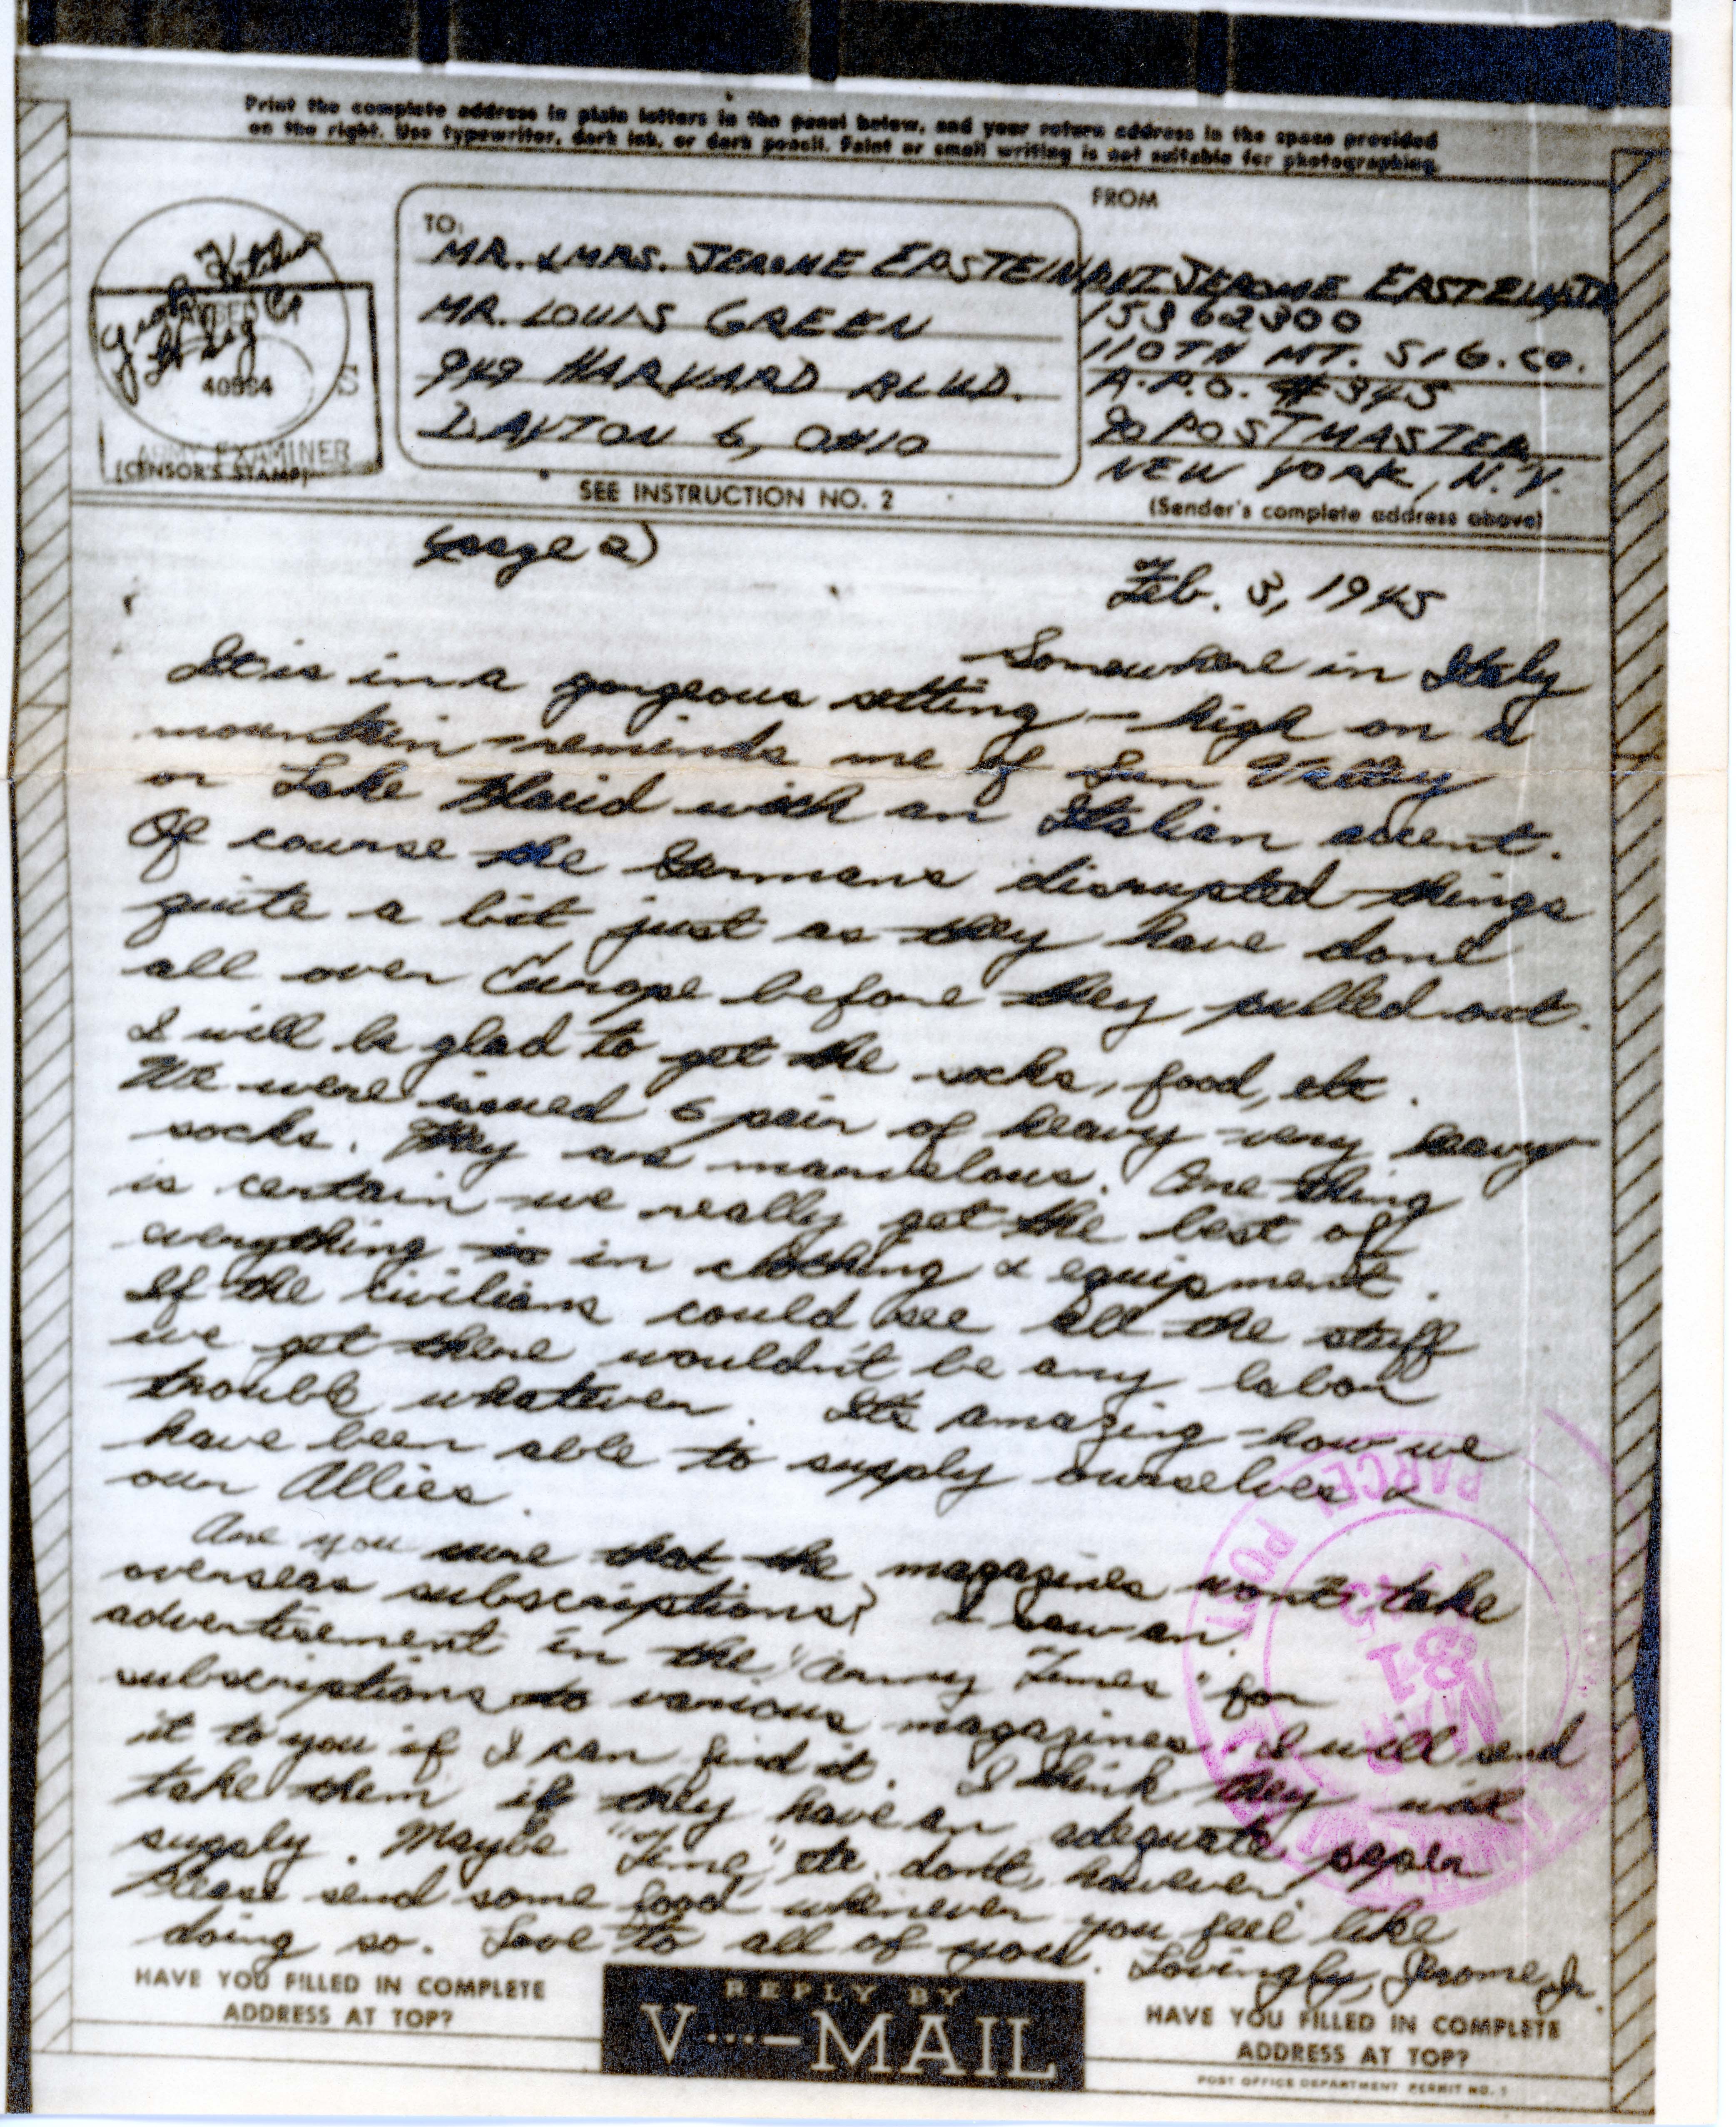 Print the complete address in plain letters in the panel below, and your return address in the space provided
on the right. Use typewriter, dark ink, or dark pencil. Faint or small writing is not suitable for photographing.
FROM
TO:
MR. & MRS. JEROME EASTEIN
MR. LOUIS GREEN
949 HARVARD BLVD.
DAYTON 6, OHIO
PVT. JEROME EASTEIN, JR
15362300
110TH MT. SIG. CO.
A.P.O. #345
% POSTMASTER
NEW YORK, N.Y.
(Sender's complete address above)
40594
S
ARMY EXAMINER
(CENSOR'S STAMP)
SEE INSTRUCTION NO. 2
(page 2)
Feb. 3, 1945
Somewhere in Italy
It is in a gorgeous setting - high on a
mountain - reminds me of Sun Valley
or Lake Placid with an Italian accent.
Of course the Germans disrupted things
quite a bit just as they have done
all over Europe before they pulled out.
I will be glad to get the socks, food, etc.
We were issued 6 pair of heavy - very heavy
socks. They are marvelous. One thing
is certain - we really get the best of
everything in clothing & equipment.
If the civilians could see all the stuff
we get there wouldn't be any labor
trouble whatever. It's amazing how we
have been able to supply ourselves &
our Allies.
Are you sure that the magazines won't take
overseas subscriptions? I saw an
advertisement in the "Army Times" for
subscriptions to various magazines. I will send
it to you if I can find it. I think they will
take them if they have an adequate paper
supply. Maybe "Time," etc. don't, however.
Please send some food whenever you feel like
doing so. Love to all of you. Lovingly, Jerome, Jr.
PARCEL POST
MAR
31
HAVE YOU FILLED IN COMPLETE
ADDRESS AT TOP?
REPLY BY
V···—MAIL
HAVE YOU FILLED IN COMPLETE
ADDRESS AT TOP?
POST OFFICE DEPARTMENT PERMIT NO. 1